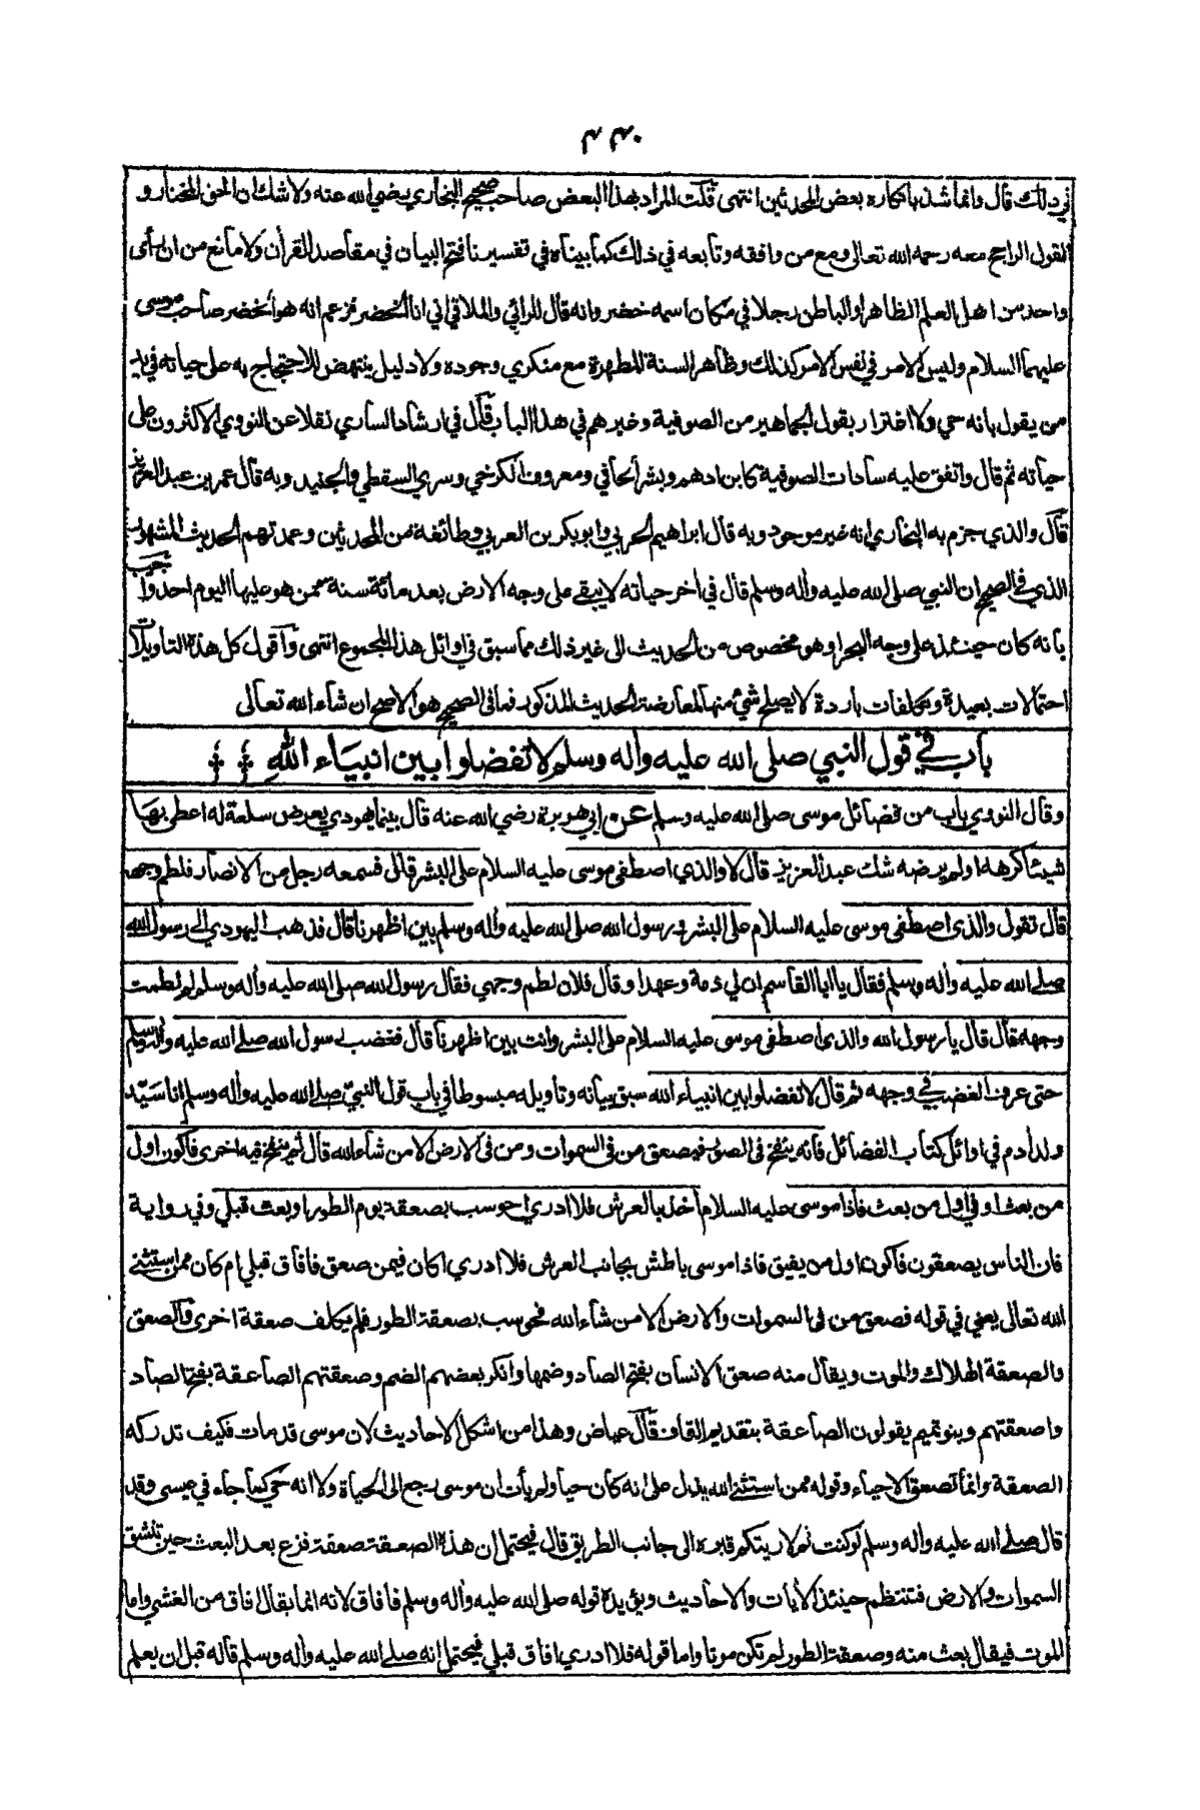 في ذلك قال وانما شذ بانكاره بعض المحدثين انتهى قلت المراد بهذا البعض صاحب صحيح البخاري رضي الله عنه ولا شك ان الحق المختار و
القول الراجح معه رحمه الله تعالى ومع من وافقه وتابعه في ذلك كما بيناه في تفسيرنا فتح البيان في مقاصد القرأن ولا مانع من ان رأى
واحد من اهل العلم الظاهر او الباطن رجلا في مكان اسمه خضر وانه قال للرائي والملاقي اني انا الخضر فزعم انه هو الخضر صاحب موسى
عليهما السلام وليس الامر في نفس الامر كذلك وظاهر السنة المطهرة مع منكري وجوده ولا دليل ينتهض للاحتجاج به على حياته في يد
من يقول بانه حي ولا اغترار بقول الجماهير من الصوفية وغيرهم في هذا الباب قال في ارشاد الساري نقلا عن النووي الاكثرون على
حياته ثم قال واتفق عليه سادات الصوفية كابن ادهم وبشر الحافي ومعروف الكرخي وسري السقطي والجنيد وبه قال عمر بن عبد العزيز
قال والذي جزم به البخاري انه غير موجود وبه قال ابراهيم الحربي وابو بكر بن العربي وطائفة من المحدثين وعمدتهم الحديث المشهور
الذي في الصحيح ان النبي صلى الله عليه وأله وسلم قال في أخر حياته لا يبقى على وجه الارض بعد مائة سنة ممن هو عليها اليوم احد واجيب
بانه كان حينئذ على وجه البحر او هو مخصوص من الحديث الى غير ذلك مما سبق في اوائل هذا المجموع انتهى وأقول كل هذه التأويلات
احتمالات بعيدة وتكلفات باردة لا يصلح شئ منها لمعارضة الحديث المذكور فما في الصحيح هو الاصح ان شاء الله تعالى
باب في قول النبي صلى الله عليه وأله وسلم لا تفضلوا بين انبياء الله
وقال النووي باب من فضائل موسى صلى الله عليه وسلم عن ابي هريرة رضي الله عنه قال بينما يهودي يعرض سلعة له اعطي بها
شيئا كرهه او لم يرضه شك عبد العزيز قال لا والذي اصطفى موسى عليه السلام على البشر قال فسمعه رجل من الانصار فلطم وجهه
قال تقول والذي اصطفى موسى عليه السلام على البشر ورسول الله صلى الله عليه وأله وسلم بين اظهرنا قال فذهب اليهودي الى رسول الله
صلى الله عليه وأله وسلم فقال يا ابا القاسم ان لي ذمة وعهدا وقال فلان لطم وجهي فقال رسول الله صلى الله عليه وأله وسلم لم لطمت
وجهه قال قال يا رسول الله والذي اصطفى موسى عليه السلام على البشر وانت بين اظهرنا قال فغضب رسول الله صلى الله عليه وأله وسلم
حتى عرف الغضب في وجهه ثم قال لا تفضلوا بين انبياء الله سبق بيانه وتأويله مبسوطا في باب قول النبي صلى الله عليه وأله وسلم انا سيد
ولد أدم في اوائل كتاب الفضائل فانه ينفخ في الصور فيصعق من في السموات ومن في الارض الا من شاء الله قال ثم ينفخ فيه اخرى فاكون اول
من بعث او في اول من بعث فاذا موسى عليه السلام أخذ بالعرش فلا ادري احوسب بصعقة يوم الطور او بعث قبلي وفي رواية
فان الناس يصعقون فاكون اول من يفيق فاذا موسى باطش بجانب العرش فلا ادري اكان فيمن صعق فافاق قبلي ام كان ممن استثنى
الله تعالى يعني في قوله فصعق من في السموات والارض الا من شاء الله فحوسب بصعقة الطور فلم يكلف صعقة اخرى والصعق
والصعقة الهلاك والموت ويقال منه صعق الانسان بفتح الصاد وضمها وانكر بعضهم الضم وصعقتهم الصاعقة بفتح الصاد
واصعقتهم وبنو تميم يقولون الصاعقة بتقديم القاف قال عياض وهذا من اشكل الاحاديث لان موسى قد مات فكيف تدركه
الصعقة وانما تصعق الاحياء وقوله ممن استثنى الله يدل على انه كان حيا ولم يأت ان موسى رجع الى الحياة ولا انه حي كما جاء في عيسى وقد
قال صلى الله عليه وأله وسلم لو كنت ثم لاريتكم قبره الى جانب الطريق قال فيحتمل ان هذه الصعقة صعقة فزع بعد البعث حين تنشق
السموات والارض فتنتظم حينئذ الأيات والاحاديث ويؤيده قوله صلى الله عليه وأله وسلم فافاق لانه انما يقال افاق من الغشي واما
الموت فيقال بعث منه وصعقة الطور لم تكن موتا واما قوله فلا ادري افاق قبلي فيحتمل انه صلى الله عليه وأله وسلم قاله قبل ان يعلم